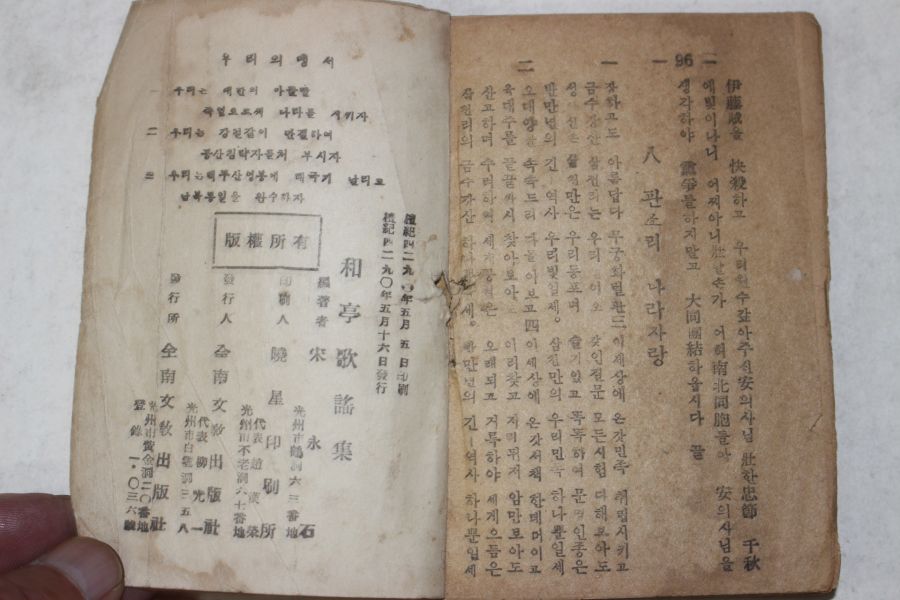 — 96 —
伊藤博을 快殺하고 우리원수갚아주신安의사님 壯한忠節 千秋
에빛이나니 어찌아니壯할손가 어허南北同胞들아 安의사님을
생각하야 黨爭들하지말고 大同團結하옵시다 끝
八 판소리 나라사랑
一
장하고도 아름답다 무궁화벌판三 이세상에 온갓민족 취립시키고
금수강산 삼천리는 우리 이오 갖인질문 모든시험 다해보아도
우리동포며 슬기있고 똑똑하여 문명인종은
반만년의 긴 역사 우리빛일세 삼천만의 우리민족 하나뿐일세
二
오대양을 속속드리 다돌아보고四 이세상에 온갓서책 한데머이고
육대주를 끝끝까지 찾아보아 이리찾고 저리뒤저 암만보아도
산고하며 수려하여 세계 은 오래되고 거륵하야 세계으뜸은
삼천리의 금수강산 하나 세 반만년의 긴 역사 하나뿐일세
우리의맹서
一 우리는 대한의 아들딸
죽엄으로써 나라를 지키자
二 우리는 강철같이 단결하여
공산침략자를처 부시자
三 우리는백두산영봉에 태극기 날리고
남북통일을 완수하자
檀紀四二九〇年五月 五日印刷
檀紀四二九〇年五月十六日發行
和亭歌謠集
版權所有
編著者 宋 永 石
光州市鶴洞六三番地
印刷人 曉星印刷所
代表 趙 榮
光州市不老洞六十番地
發行人 全南文敎出版社
代表 柳 光 一
光州市白雲洞三五八
發行所 全南文敎出版社
光州市黃金洞二〇番地
登錄 一·〇三六號